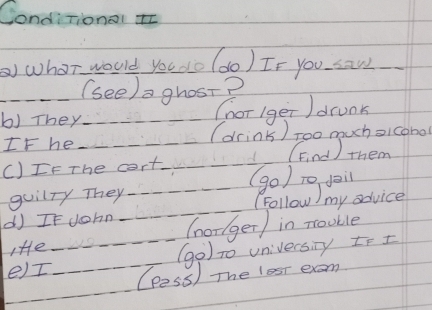 Conditional II
a) What would you do (do) If you saw
(see) a ghost?
b) They (not/get) drunk
If he (drink) too much alcohol
c) If the cort (Find) them
guilty they (go) to jail
d) If John (follow) my advice
,He (not/get) in trouble
e) I (go) to university If I
(pass) the last exam